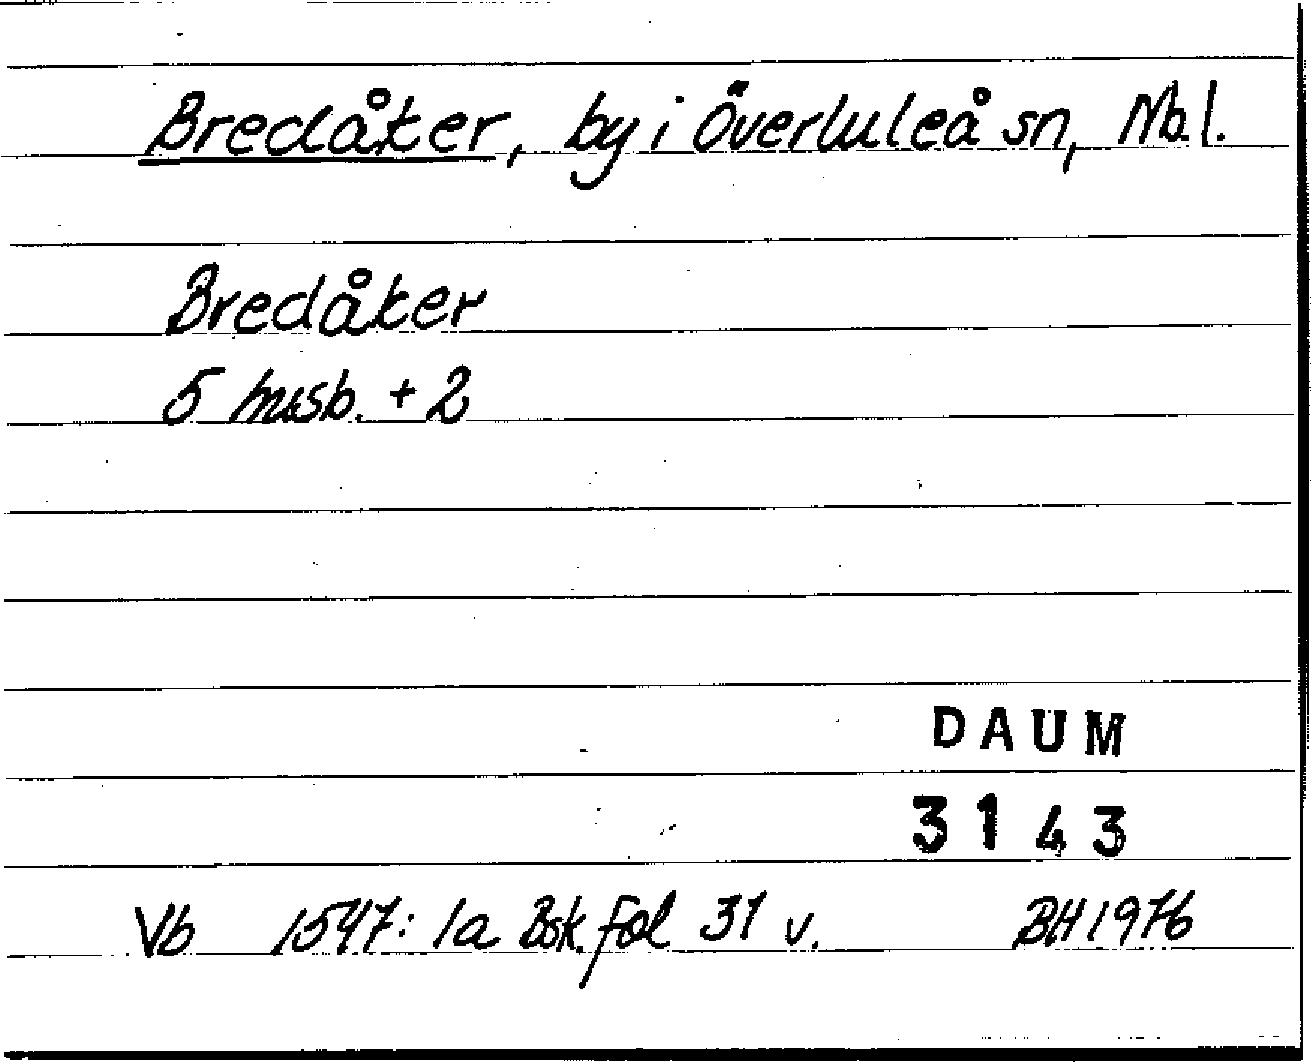 Bredåker, by i Överluleå sn, Nb. l.
Bredåker
5 husb. + 2
DAUM
3143
Vb 1547: 1a Bsk. fol 31 v. BH 1976